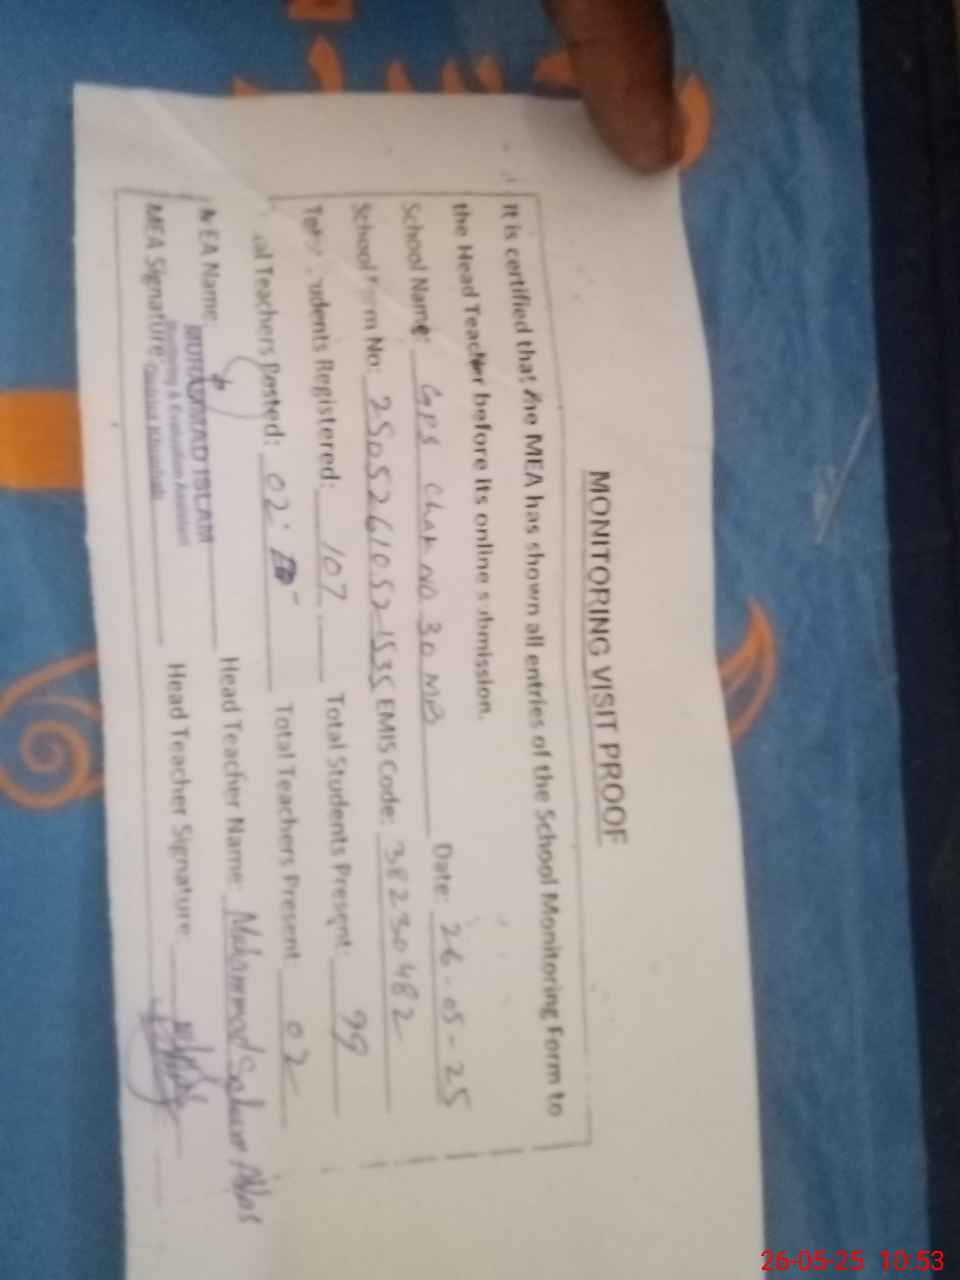 MONITORING VISIT PROOF
It is certified that the MEA has shown all entries of the School Monitoring Form to
the Head Teacher before its online submission.
School Name: GPS Chak NO 30 MB Date: 26-05-25
School Form No: 2505261052-1535 EMIS Code: 38230482
Total Students Registered: 107 Total Students Present: 99
Total Teachers Posted: 02 Total Teachers Present 02
MEA Name: MUHAMMAD ISLAM Head Teacher Name: Muhammad Saleem Abbas
Monitoring & Evaluation Assistant
MEA Signature District Khushab Head Teacher Signature:
26-05-25 10:53